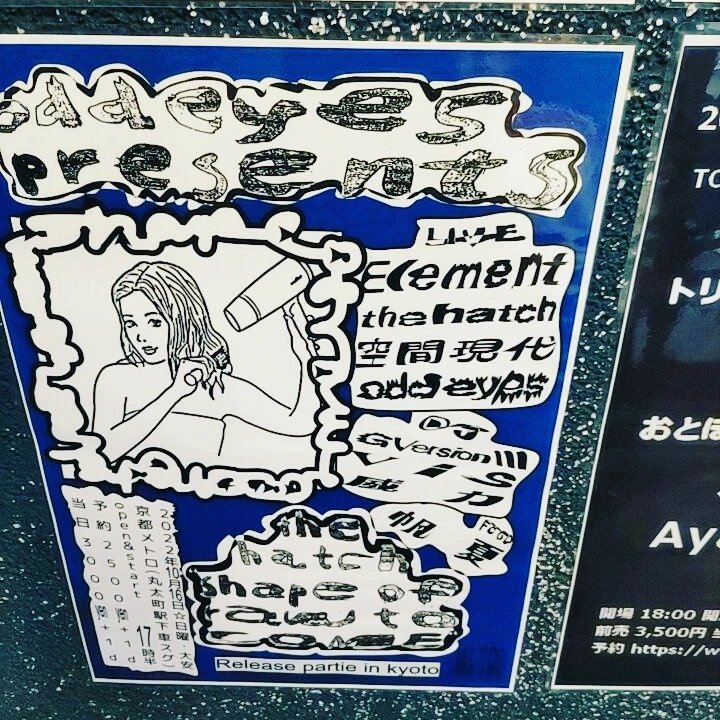 odd eyes
presents
LIVE
Element
the hatch
空間現代
odd eyes
DJ
G Version III
威力
Food
帆夏
2022年10月16日☆日曜・大安
京都メトロ 丸太町駅下車スグ
open&start 17時半
予約2500圓+1d
当日3000圓+1d
the
hatch
shape of
raw to
COME
Release partie in kyoto
2
TO
トリ
おとぼ
Aya
開場 18:00 開
前売 3,500円
予約 https://w